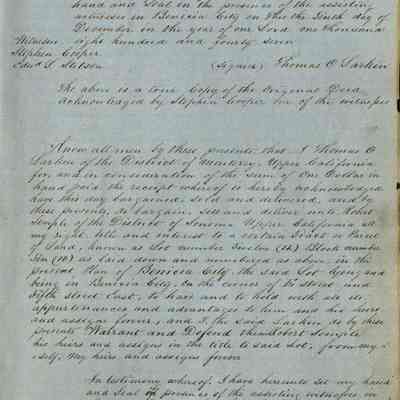 hand and Seal in the presence of the assisting
witnesses in Benicia City on this the Tenth day of
December in the year of our Lord one thousand
Witnesses eight hundred and fourty Seven
Stephen Cooper
Edwd L Stetson (Signed) Thomas O Larkin
The above is a true Copy of the Original Deed
acknowledged by Stephen Cooper one of the witnesses
Know all men by these presents that I Thomas O
Larkin of the District of Monterey Upper California
for, and in consideration of the sum of One Dollar in
hand paid the receipt whereof is hereby acknowledged
have this day bargained, sold and delivered, and by
these presents, do bargain, sell and deliver unto Robert
Semple of the District of Sonoma Upper California all
my right, title and interest to a certain piece or Parcel
of Land, known as Lot number Twelve (12) Block number
Ten (10) as laid down and numbered as above in the
present Plan of Benicia City, the said Lot lying and
being in Benicia City, on the corner of street and
Fifth street East, to have and to hold with all its
appurtenances and advantages to him and his heirs
and assigns forever, and I, the said Larkin do by these
presents Warrant and Defend the Robert Semple
his heirs and assigns in the title to said Lot, from my
self, my heirs and assigns forever
In testimony whereof, I have hereunto set my hand
and Seal in presence of the assisting witnesses, in